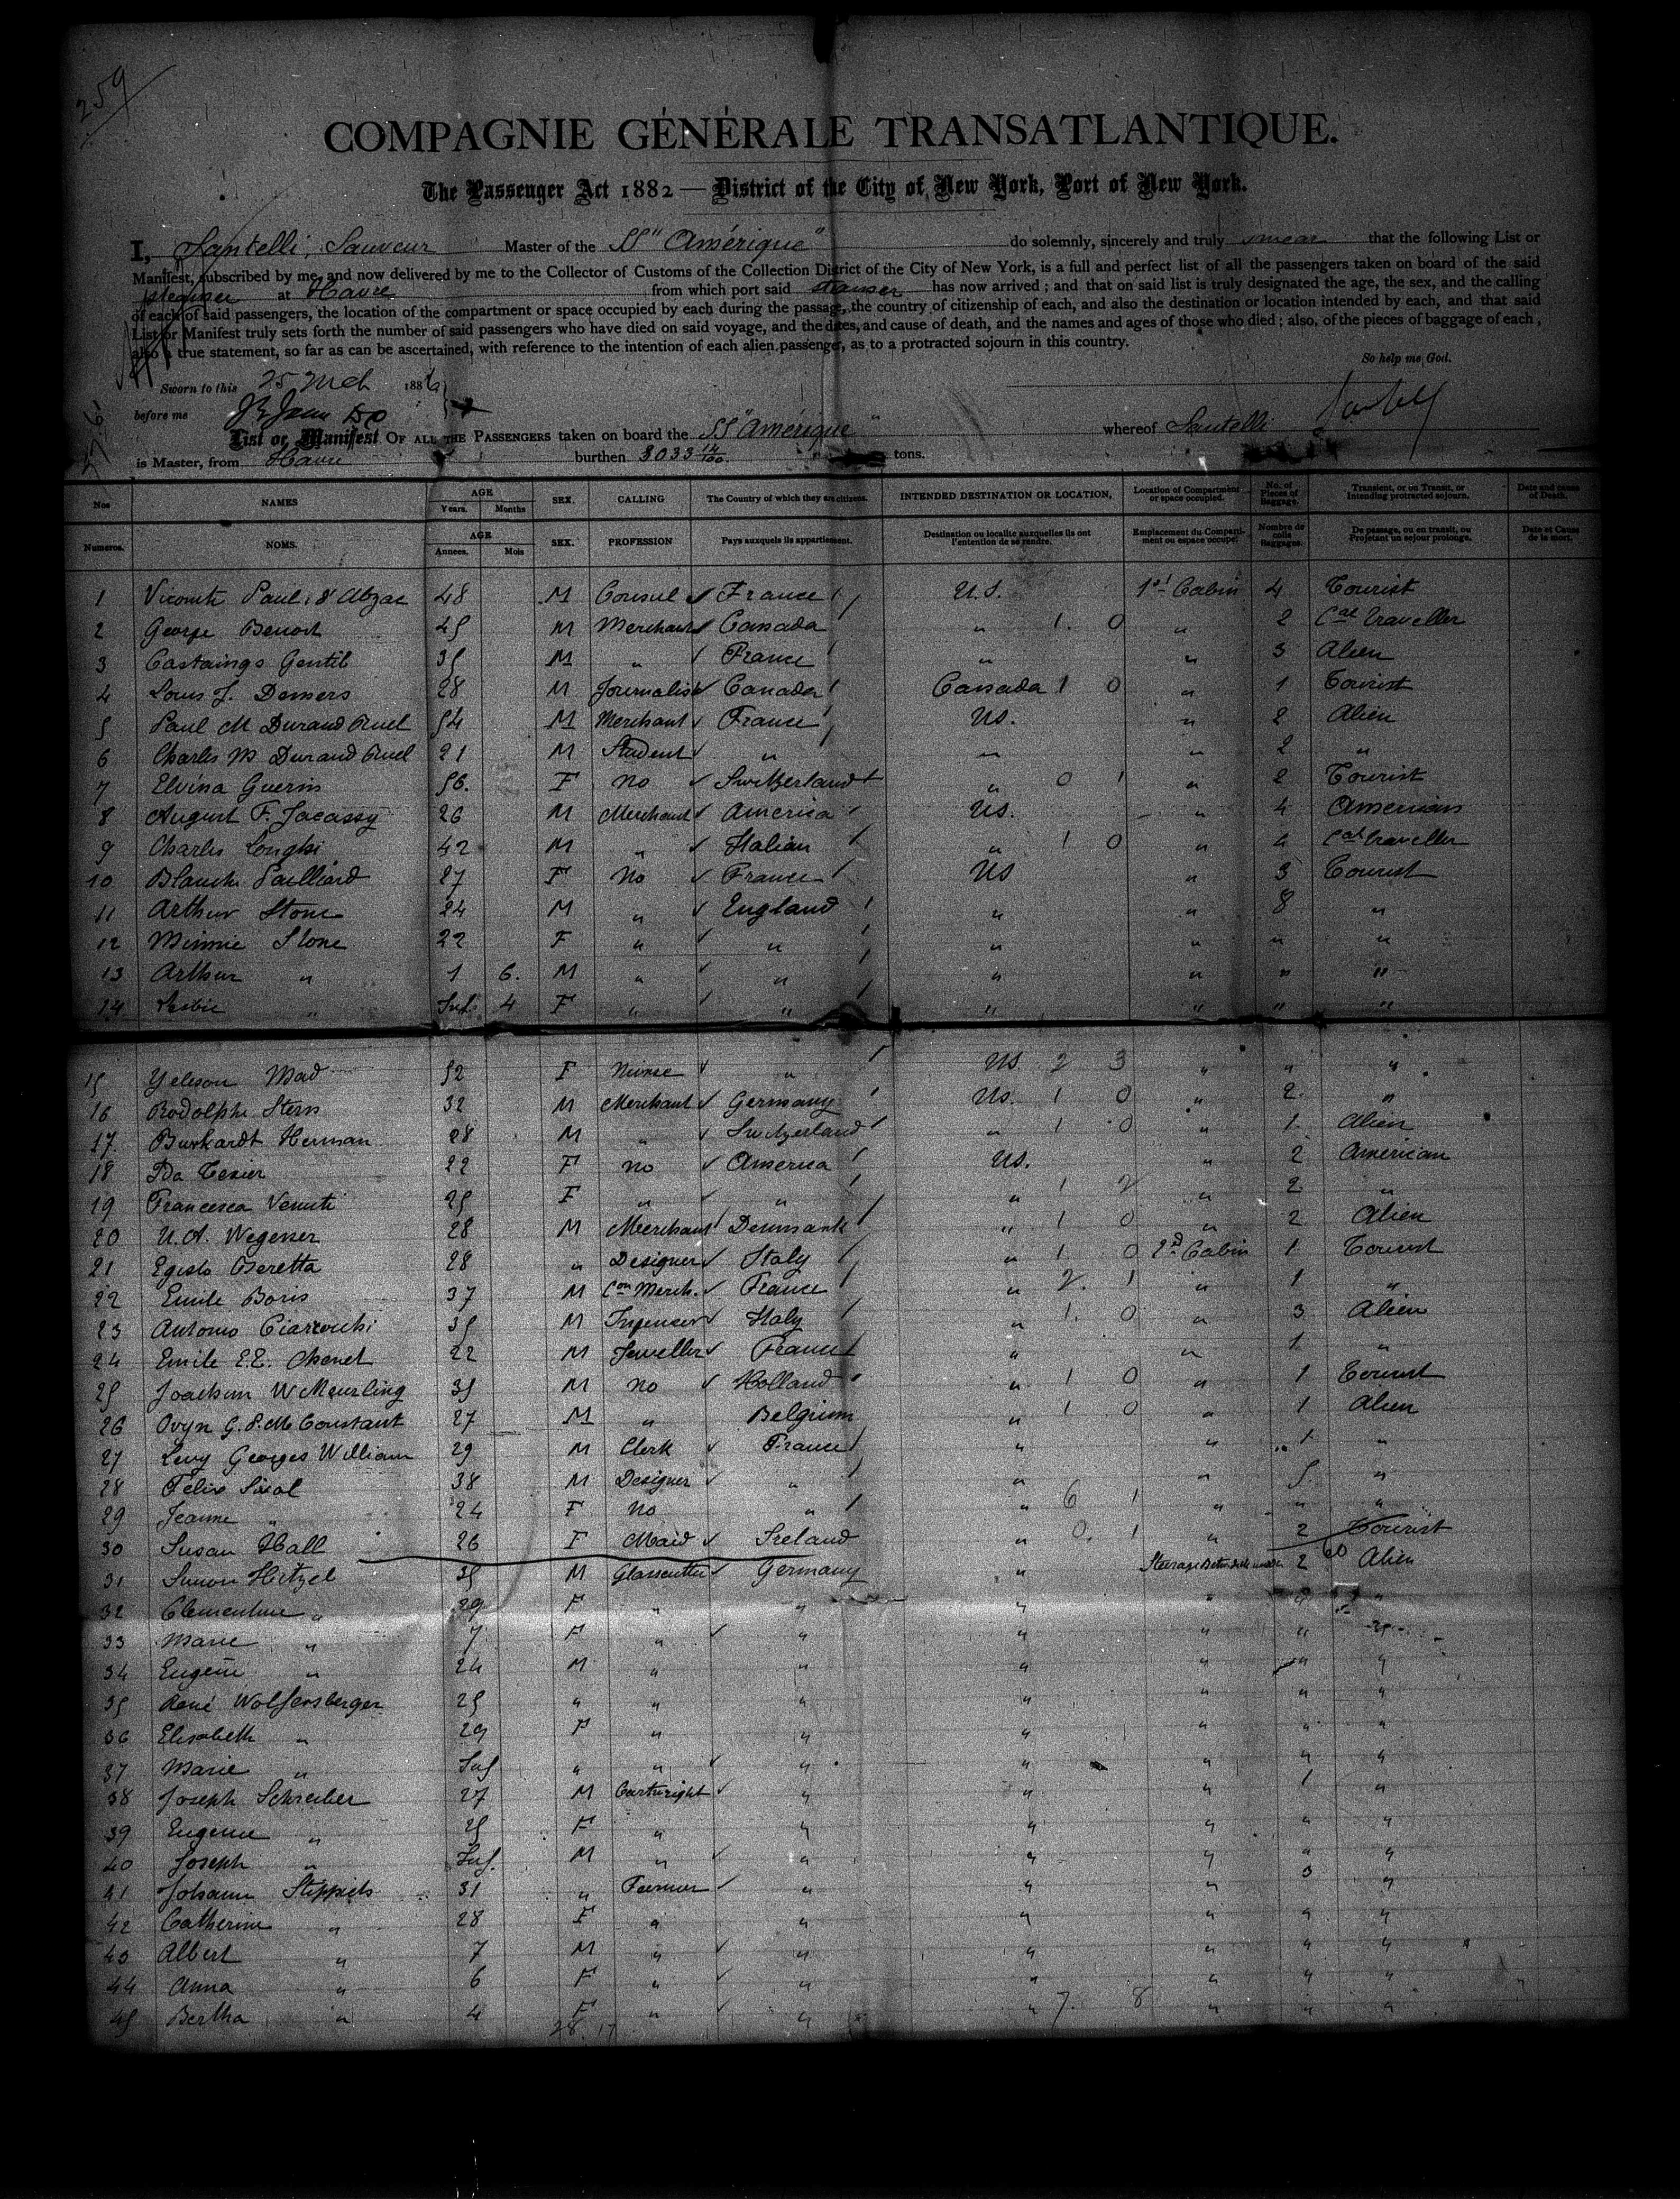 259
COMPAGNIE GÉNÉRALE TRANSATLANTIQUE.
The Passenger Act 1882 — District of the City of New York, Port of New York.
I, Santelli, Sauveur Master of the SS "Amérique" do solemnly, sincerely and truly swear that the following List or
Manifest, subscribed by me, and now delivered by me to the Collector of Customs of the Collection District of the City of New York, is a full and perfect list of all the passengers taken on board of the said
steamer at Havre from which port said steamer has now arrived; and that on said list is truly designated the age, the sex, and the calling
of each of said passengers, the location of the compartment or space occupied by each during the passage, the country of citizenship of each, and also the destination or location intended by each, and that said
List or Manifest truly sets forth the number of said passengers who have died on said voyage, and the dates, and cause of death, and the names and ages of those who died; also, of the pieces of baggage of each,
also a true statement, so far as can be ascertained, with reference to the intention of each alien passenger, as to a protracted sojourn in this country.
So help me God.
Sworn to this 25 Mch 1886
before me
List or Manifest OF ALL THE PASSENGERS taken on board the SS "Amérique" whereof Santelli
is Master, from Havre burthen 3033 12/100 tons.
Nos NAMES AGE Years. Months SEX. CALLING The Country of which they are citizens. INTENDED DESTINATION OR LOCATION, Location of Compartment or space occupied. No. of Pieces of Baggage. Transient, or on Transit, or Intending protracted sojourn. Date and cause of Death.
Numeros. NOMS. AGE Annees. Mois SEX. PROFESSION Pays auxquels ils appartiennent. Destination ou localite auxquelles ils ont l'entention de se rendre. Emplacement du Compartiment ou espace occupe. Nombre de colis Baggages. De passage, ou en transit, ou Projetant un sejour prolonge. Date et Cause de la mort.
1 Vicomte Paul d'Abzac 48 M Consul France U.S. 1st Cabin 4 Tourist
2 George Benoit 45 M Merchant Canada " 1. 0 " 2 Cal Traveller
3 Castaings Gentil 35 M " France " " 3 Alien
4 Louis J. Demers 28 M Journalist Canada Canada 1 0 " 1 Tourist
5 Paul M Durand Ruel 54 M Merchant France US. " 2 Alien
6 Charles M Durand Ruel 21 M Student " " " 2 "
7 Elvina Guerin 56. F No Switzerland " 0 1 " 2 Tourist
8 August F. Jacassy 26 M Merchant America US. " 4 American
9 Charles Longhi 42 M " Italian " 1 0 " 4 Cal Traveller
10 Blanche Pailliard 27 F No France US " 3 Tourist
11 Arthur Stone 24 M " England " " 8 "
12 Minnie Stone 22 F " " " " " "
13 Arthur " 1 6. M " " " " " "
14 " Inf. 4 F " " " " " "
15 Yelison Mad 52 F Nurse " US. 2 3 " " "
16 Rodolphe Stern 32 M Merchant Germany US. 1 0 " 2 "
17. Burkardt Herman 28 M " Switzerland " 1 0 " 1 Alien
18 Ida Texier 22 F No America US. " 2 American
19 Francesca Venuti 25 F " " " 1 2 " 2 "
20 U. A. Wegener 28 M Merchant Denmark " 1 0 " 2 Alien
21 Egisto Beretta 28 " Designer Italy " 1 0 2d Cabin 1 Tourist
22 Emile Boris 37 M Con Merch. France " 2. 1 " 1 "
23 Antonio 35 M Italy " 1. 0 " 3 Alien
24 Emile E.E. Chenet 22 M Jeweller France " " 1 "
25 Joachim W Meurling 35 M No Holland " 1 0 " 1 Tourist
26 Ovyn G. P. M. Constant 27 M " Belgium " 1 0 " 1 Alien
27 Levy Georges William 29 M Clerk France " " 1 "
28 Felix Sixol 38 M Designer " " " 5. "
29 Jeanne " 24 F No " " 6 1 " " "
30 Susan Hall 26 F Maid Ireland " 0. 1 " 2 Tourist
31 Simon Hitzel 35 M Glasscutter Germany " Steerage 2 60 Alien
32 Clementine " 29 F " " " " " "
33 Marie " 7 F " " " " " "
34 Eugene " 24 M " " " " " "
35 René Wolfersberger 25 " " " " " " "
36 Elisabeth " 29 F " " " " " "
37 Marie " Inf " " " " " " "
38 Joseph Schreiber 27 M Cartwright " " " 1 "
39 Eugenie " 25 F " " " " " "
40 Joseph " Inf. M " " " " " "
41 Johann Stippich 31 " Farmer " " " 3 "
42 Catherine " 28 F " " " " " "
43 Albert " 7 M " " " " " "
44 Anna " 6 F " " " " " "
45 Bertha " 4 F " " " 7. 8 " " "
28. 17